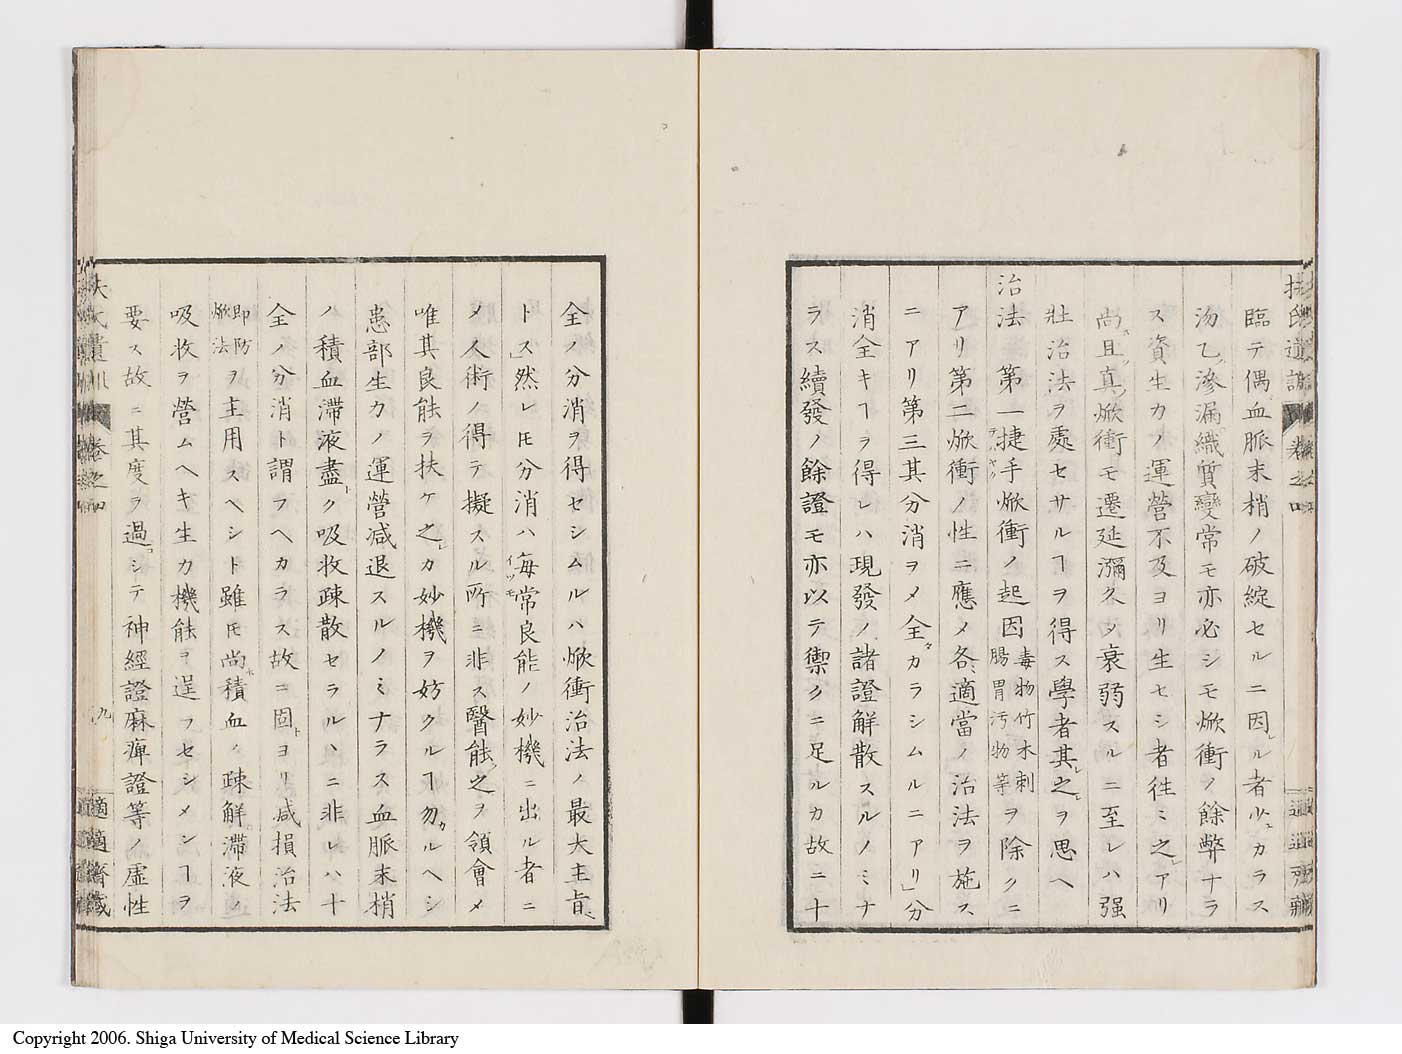 扶氏遺訓 卷之四
臨テ偶血脈末梢ノ破綻セルニ因ル者少カラス
汤乙滲漏織質變常モ亦必シモ焮衝ノ餘弊ナラ
ス資生力ノ運營不及ヨリ生セシ者徃ミ之アリ
尚且真焮衝モ遷延瀰久シ衰弱スルニ至レハ强
壯治法ヲ處セサルヿヲ得ス學者其之ヲ思ヘ
治法 第一捷手焮衝ノ起因毒物竹木刺腸胃汚物等ヲ除クニ
アリ第二焮衝ノ性ニ應メ各適當ノ治法ヲ施ス
ニアリ第三其分消ヲメ全カラシムルニアリ」分
消全キヿヲ得レハ現發ノ諸證解散スルノミナ
ラス續發ノ餘證モ亦以テ禦クニ足ルカ故ニ十
全ノ分消ヲ得セシムルハ焮衝治法ノ最大主旨
トス」然レ𪜈分消ハ毎常良能ノ妙機ニ出ル者ニ
メ人術ノ得テ擬スル所ニ非ス醫能之ヲ領會メ
唯其良能ヲ扶ケ之カ妙機ヲ妨クルヿ勿ルヘシ
患部生力ノ運營减退スルノミナラス血脈末梢
ノ積血滯液盡ク吸收疎散セラルヽニ非レハ十
全ノ分消ト謂フヘカラス故ニ固ヨリ减損治法
即防焮法ヲ主用スヘシト雖𪜈尚積血ノ疎解滯液ノ
吸收ヲ營ムヘキ生力機能ヲ逞フセシメンヿヲ
要ス故ニ其度ヲ過シテ神經證麻痺證等ノ虛性
卷之四
九
適適齋藏
Copyright 2006. Shiga University of Medical Science Library